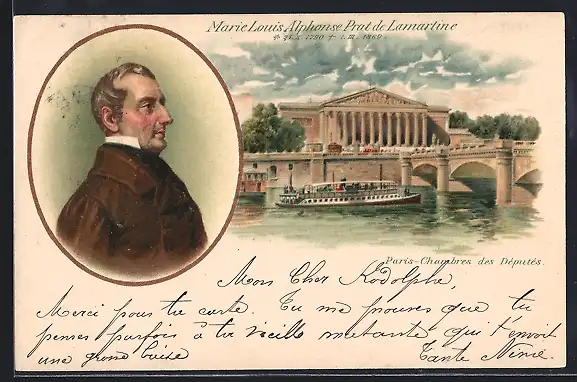 Marie Louis Alphonse Prat de Lamartine
* 21. X. 1790 † 1. III. 1869.
Paris-Chambres des Députés.
Mon Cher Rodolphe,
Merci pour ta carte. Tu me prouves que tu
penses parfois à ta vieille mutante qui t'envoit
une grosse baise
Tante Ninie.